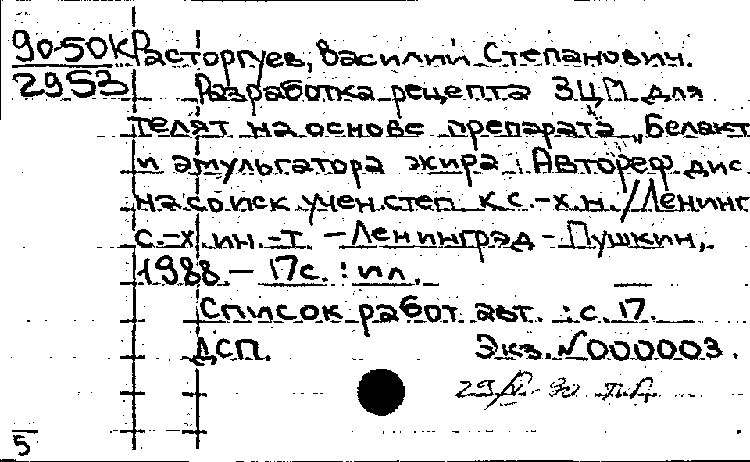 90-50К Расторгуев, Василий Степанович.
2953 Разработка рецепта ЗЦМ для
телят на основе препарата „Белакт
и эмульгатора жира : Автореф. дис.
на соиск. учен. степ. к.с.-х.н. / Ленингр
с.-х. ин.-т. - Ленинград - Пушкин,
1988. - 17с. : ил.
Список работ авт. : с. 17.
ДСП. Экз. №000003.
29/V-90
5